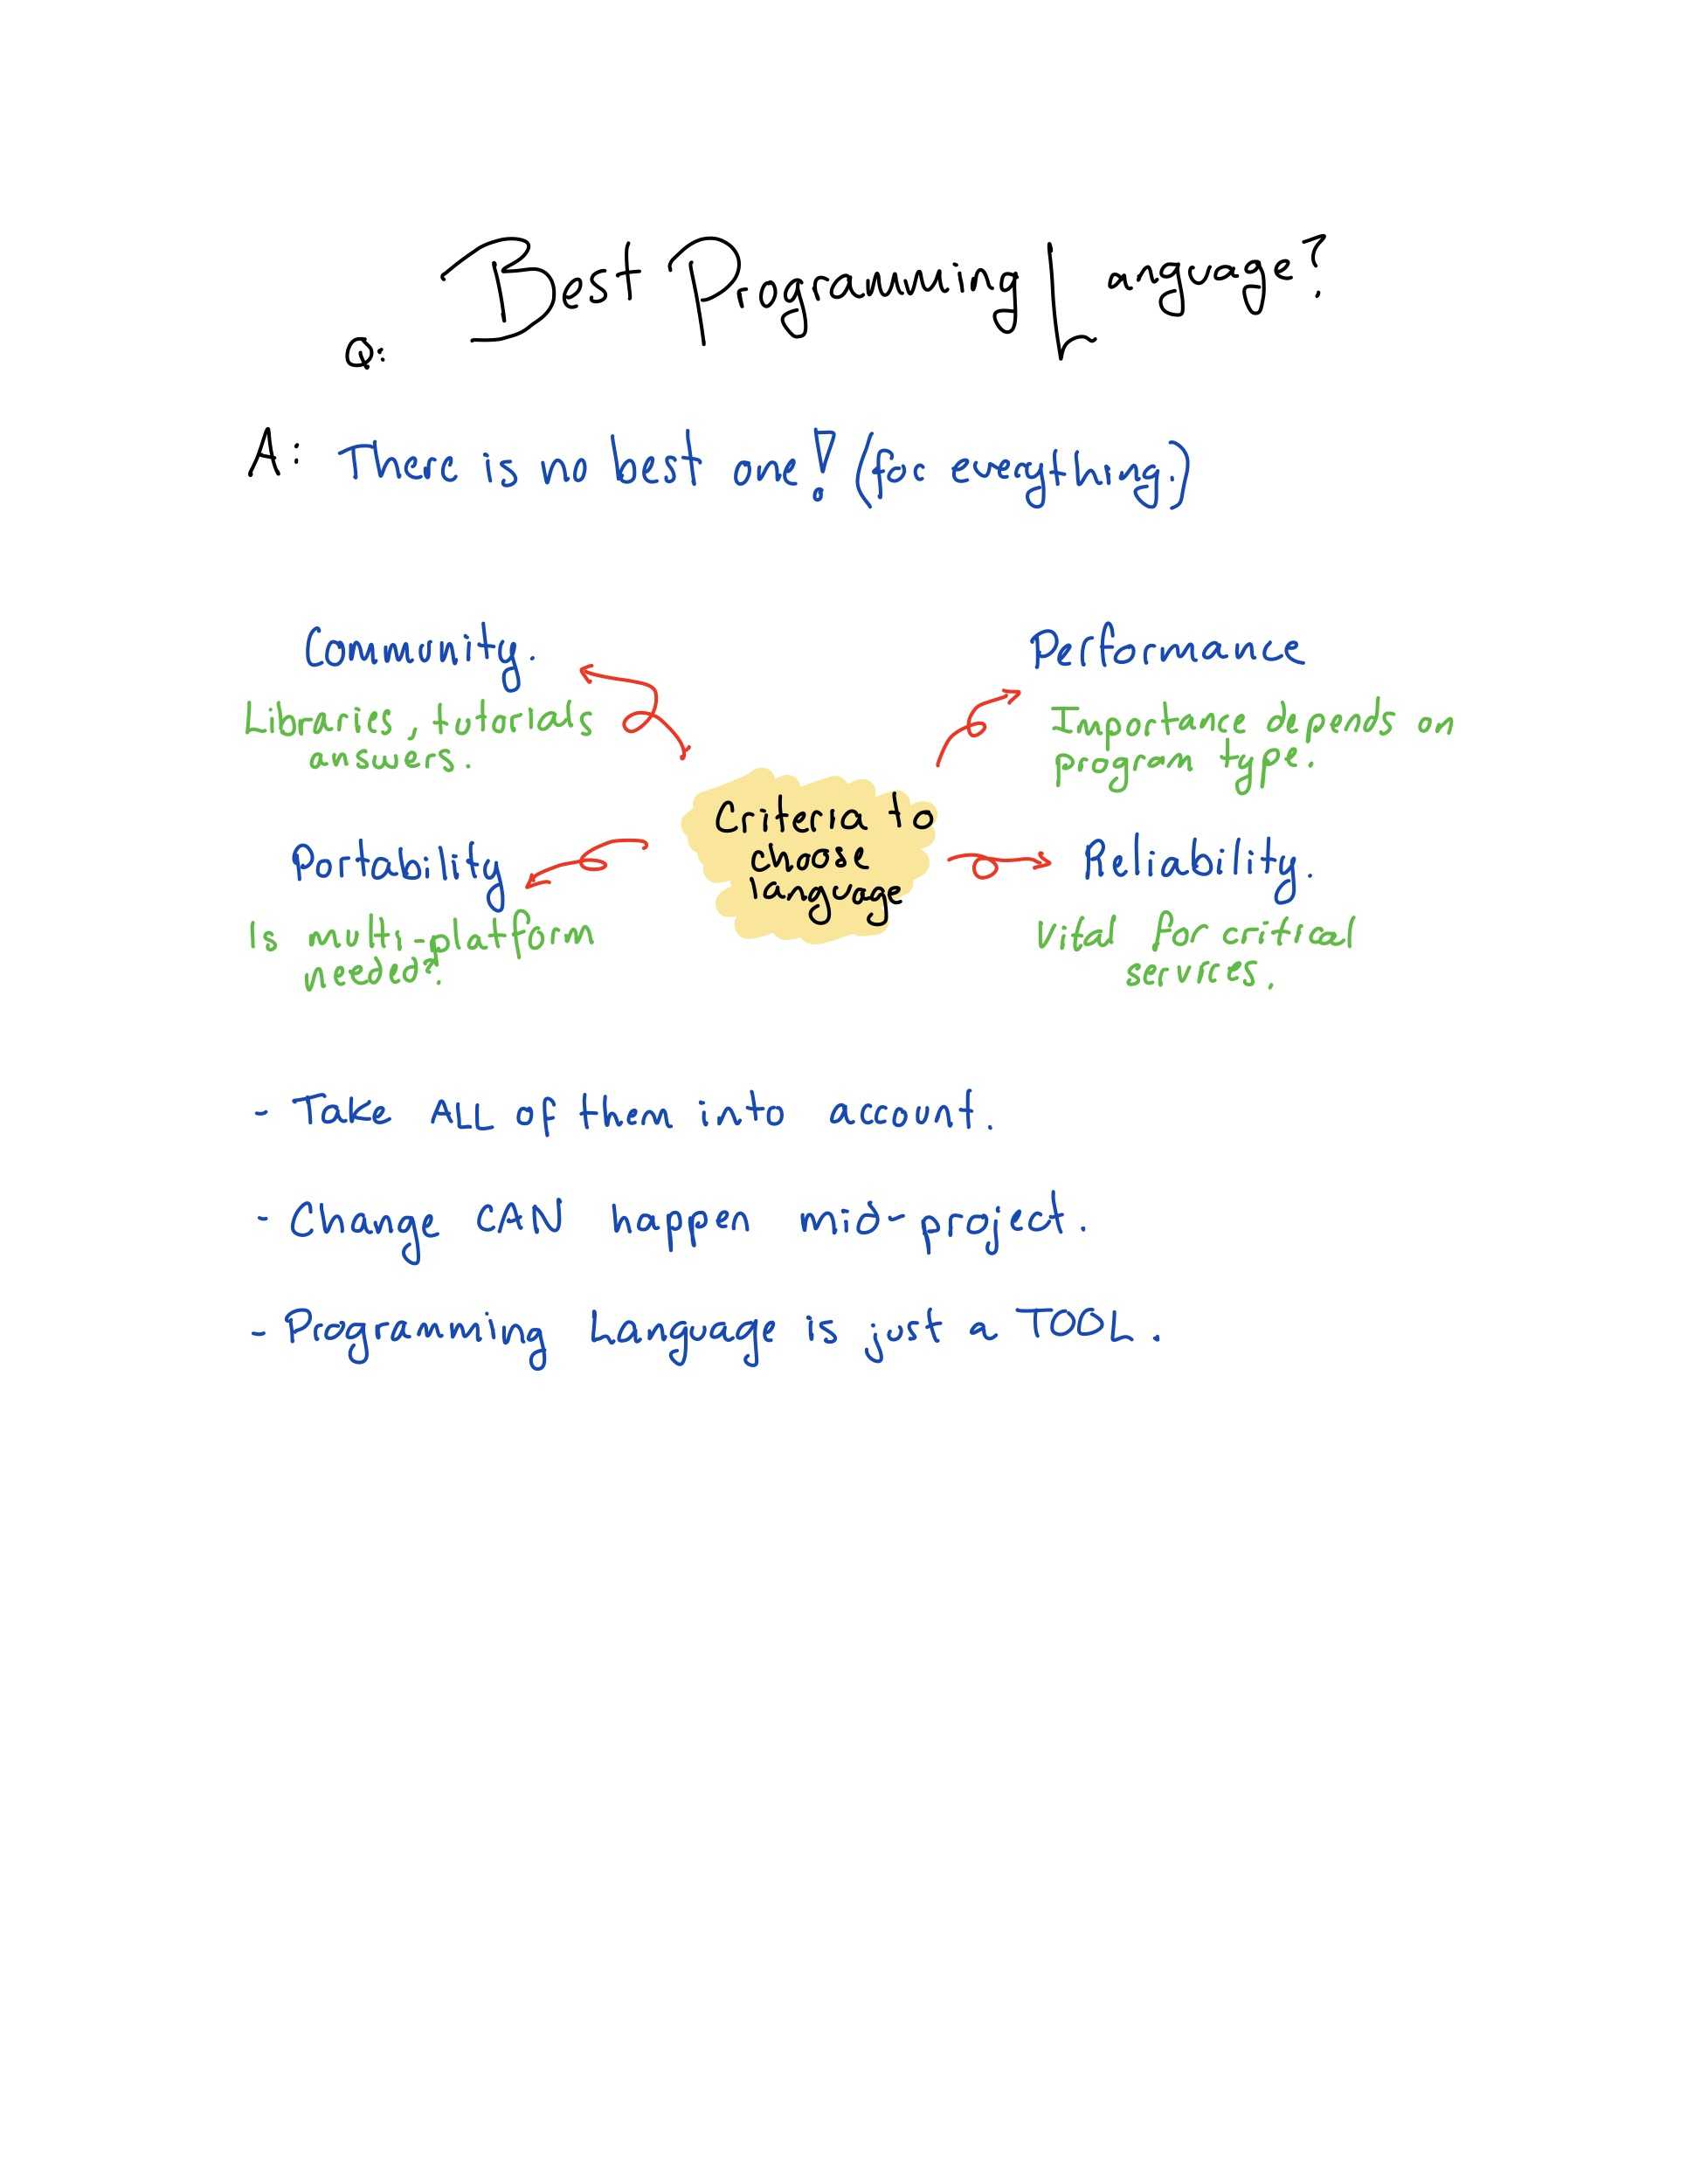 Q: Best Programming Language?
A: There is no best one! (for everything.)
Community.
Libraries, tutorials
answers.
Performance
Importance depends on
program type.
Criteria to
choose
language
Portability
Is multi-platform
needed?
Reliability.
Vital for critical
services.
- Take ALL of them into account.
- Change CAN happen mid-project.
- Programming Language is just a TOOL.